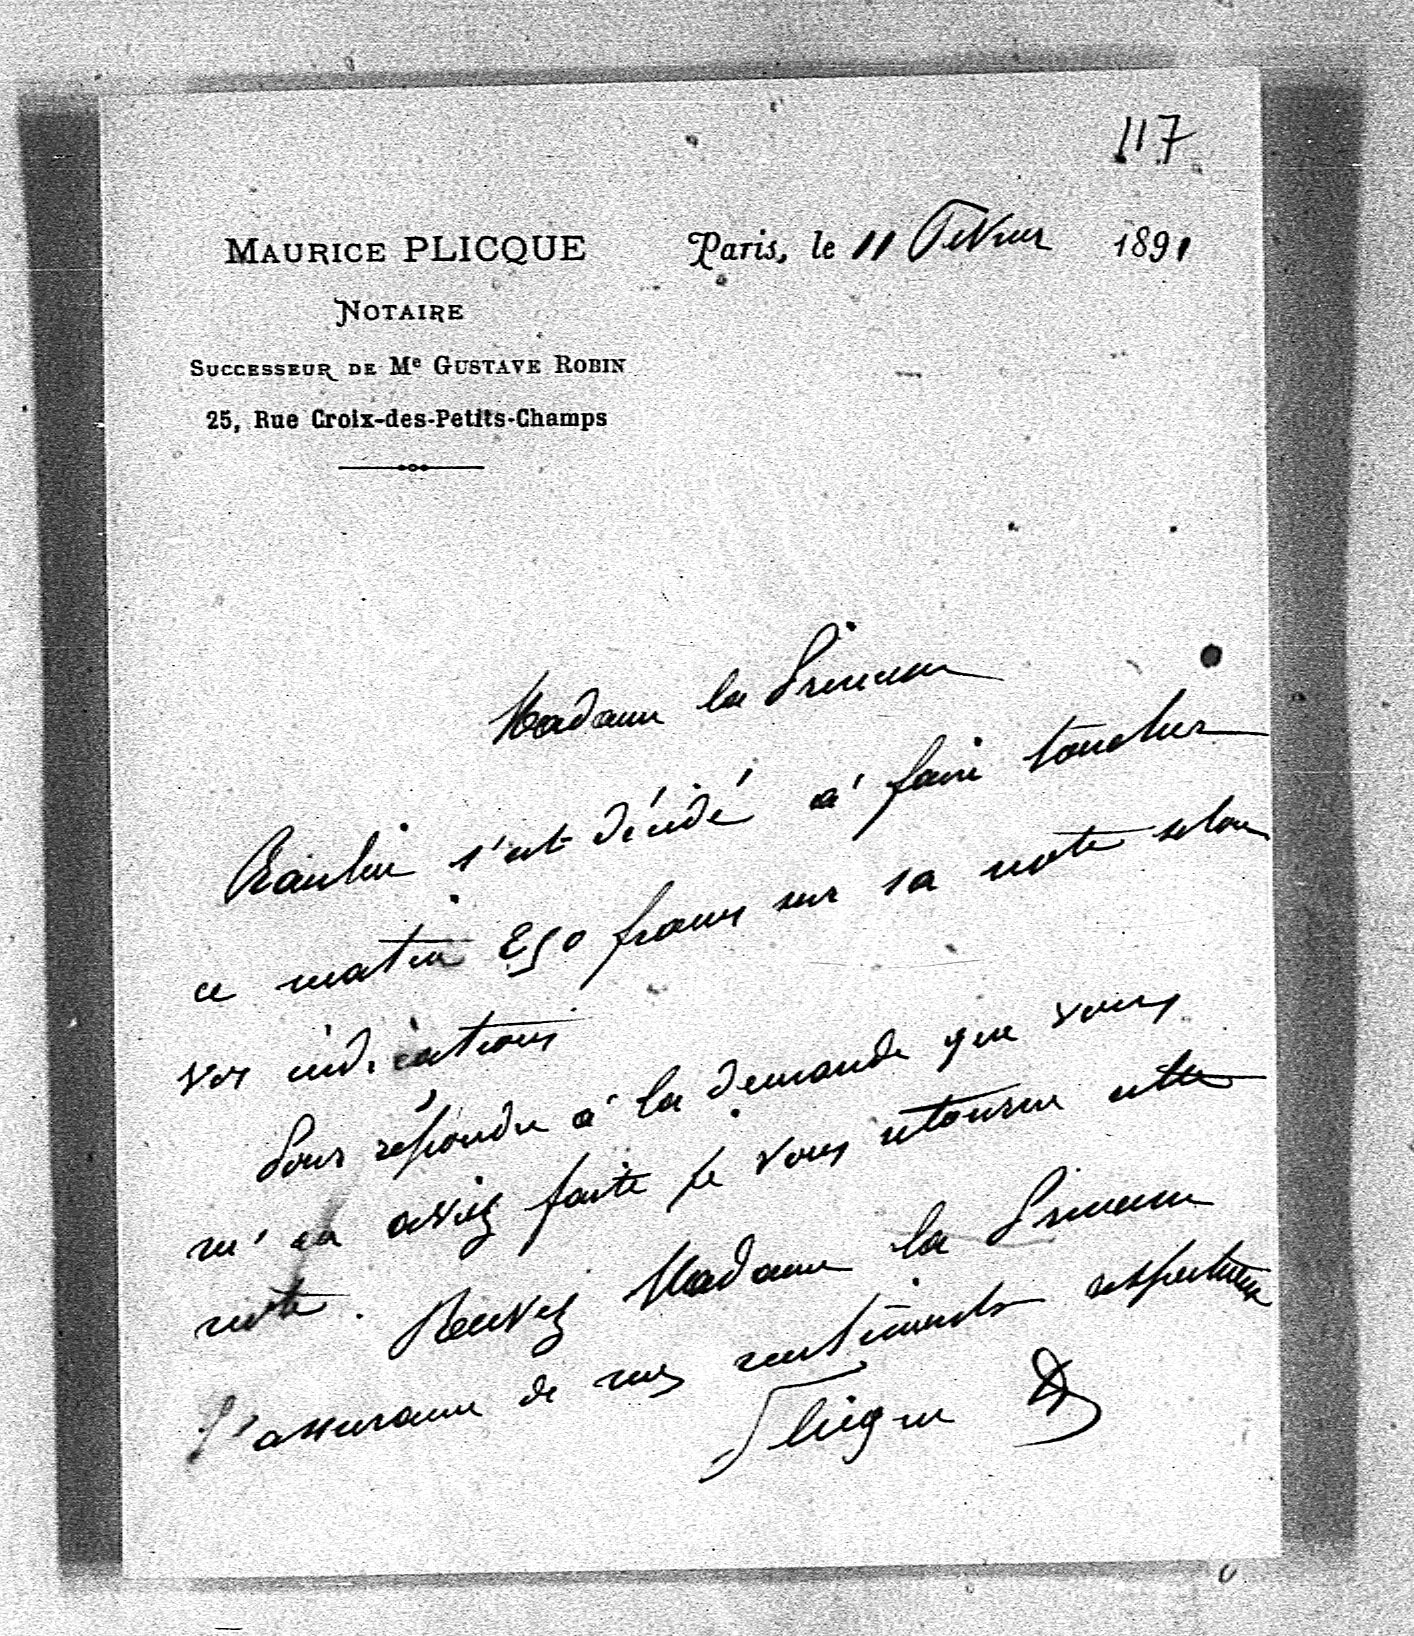 117
MAURICE PLICQUE
NOTAIRE
SUCCESSEUR DE Me GUSTAVE ROBIN
25, Rue Croix-des-Petits-Champs
Paris, le 11 Fevrier 1891
Madame la Princesse
s'est décidé à faire toucher
ce matin 250 francs sur sa note selon
vos indications
Pour répondre à la demande que vous
m'en aviez faite je vous retourne cette
note. Recevez Madame la Princesse
l'assurance de mes sentiments respectueux
Plicque